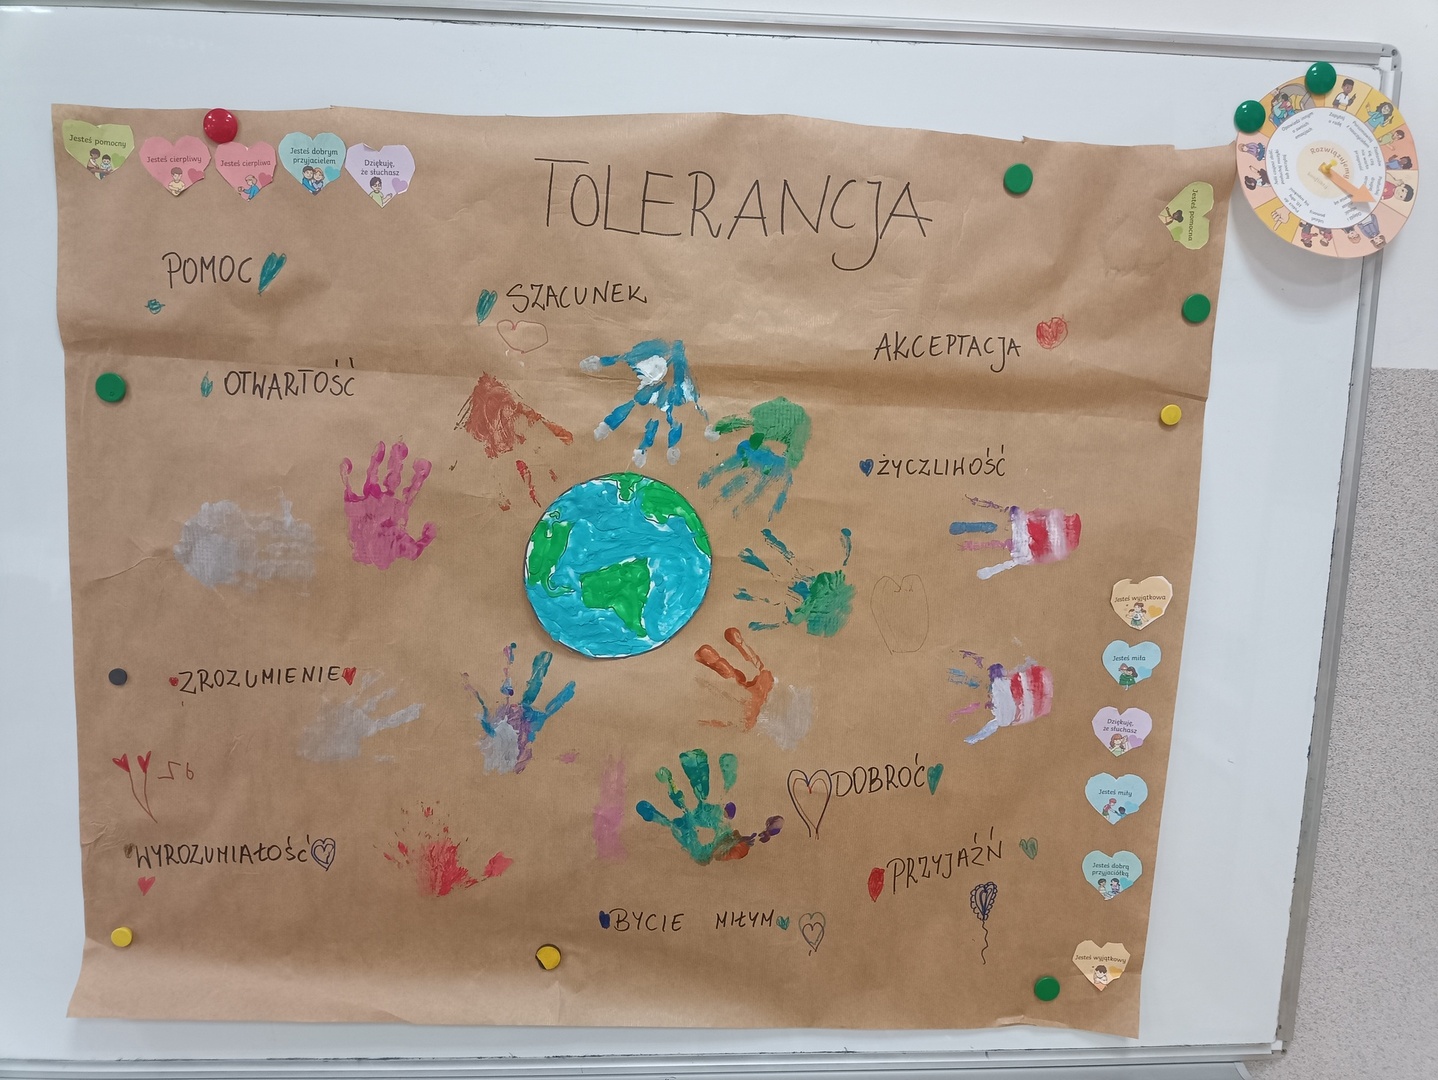 Jesteś pomocny
Jesteś cierpliwy
Jesteś cierpliwa
Jesteś dobrym
przyjacielem
Dziękuję,
że słuchasz
TOLERANCJA
Jesteś pomocna
Rozwiązujemy
POMOC
SZACUNEK
AKCEPTACJA
OTWARTOŚĆ
ŻYCZLIWOŚĆ
Jesteś wyjątkowa
Jesteś miła
ZROZUMIENIE
Dziękuję,
że słuchasz
DOBROĆ
Jesteś miły
WYROZUMIAŁOŚĆ
PRZYJAŹŃ
Jesteś dobrą
przyjaciółką
BYCIE MIŁYM
Jesteś wyjątkowy